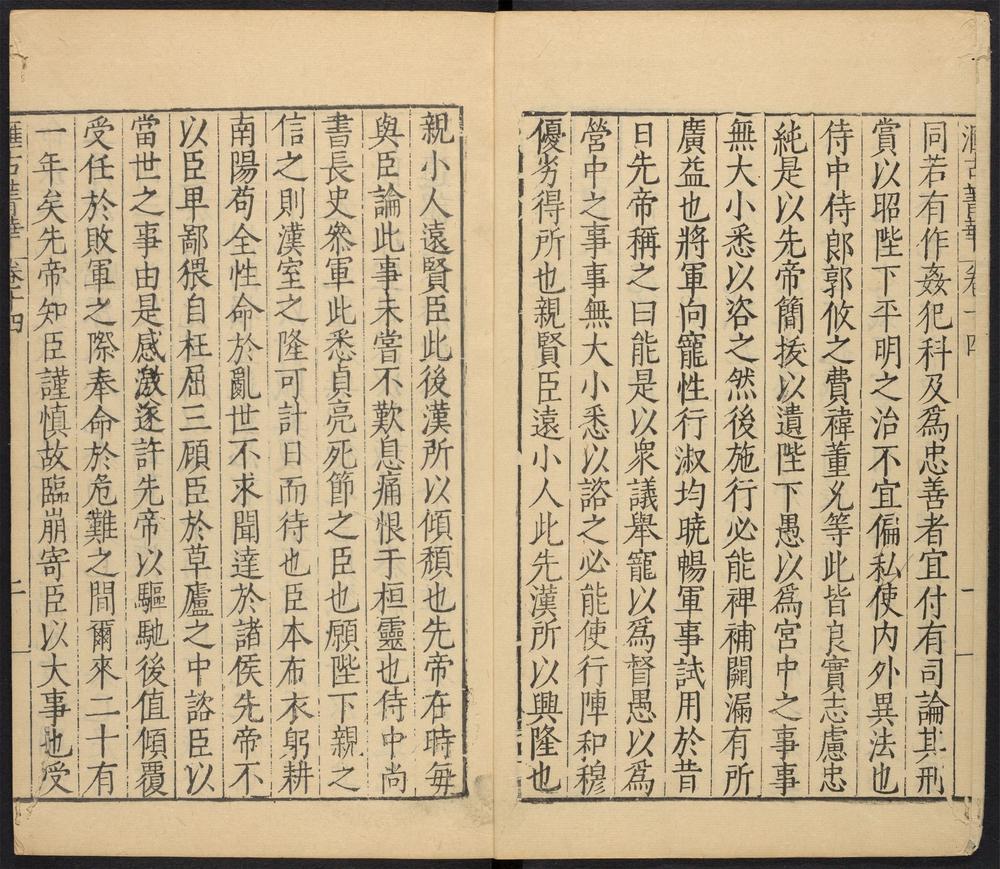 濉古書華 卷十四 一
同若有作姦犯科及爲忠善者宜付有司論其刑
賞以昭陛下平明之治不宜偏私使内外異法也
侍中侍郎郭攸之費禕董允等此皆良實志慮忠
純是以先帝簡拔以遺陛下愚以爲宮中之事事
無大小悉以咨之然後施行必能裨補闕漏有所
廣益也將軍向寵性行淑均曉暢軍事試用於昔
日先帝稱之曰能是以衆議舉寵以爲督愚以爲
營中之事事無大小悉以諮之必能使行陣和穆
優劣得所也親賢臣遠小人此先漢所以興隆也
親小人遠賢臣此後漢所以傾頹也先帝在時每
與臣論此事未嘗不歎息痛恨于桓靈也侍中尚
書長史叅軍此悉貞亮死節之臣也願陛下親之
信之則漢室之隆可計日而待也臣本布衣躬耕
南陽苟全性命於亂世不求聞達於諸侯先帝不
以臣卑鄙猥自枉屈三顧臣於草廬之中諮臣以
當世之事由是感激遂許先帝以驅馳後值傾覆
受任於敗軍之際奉命於危難之間爾來二十有
一年矣先帝知臣謹慎故臨崩寄臣以大事也受
古 華 卷十四 二